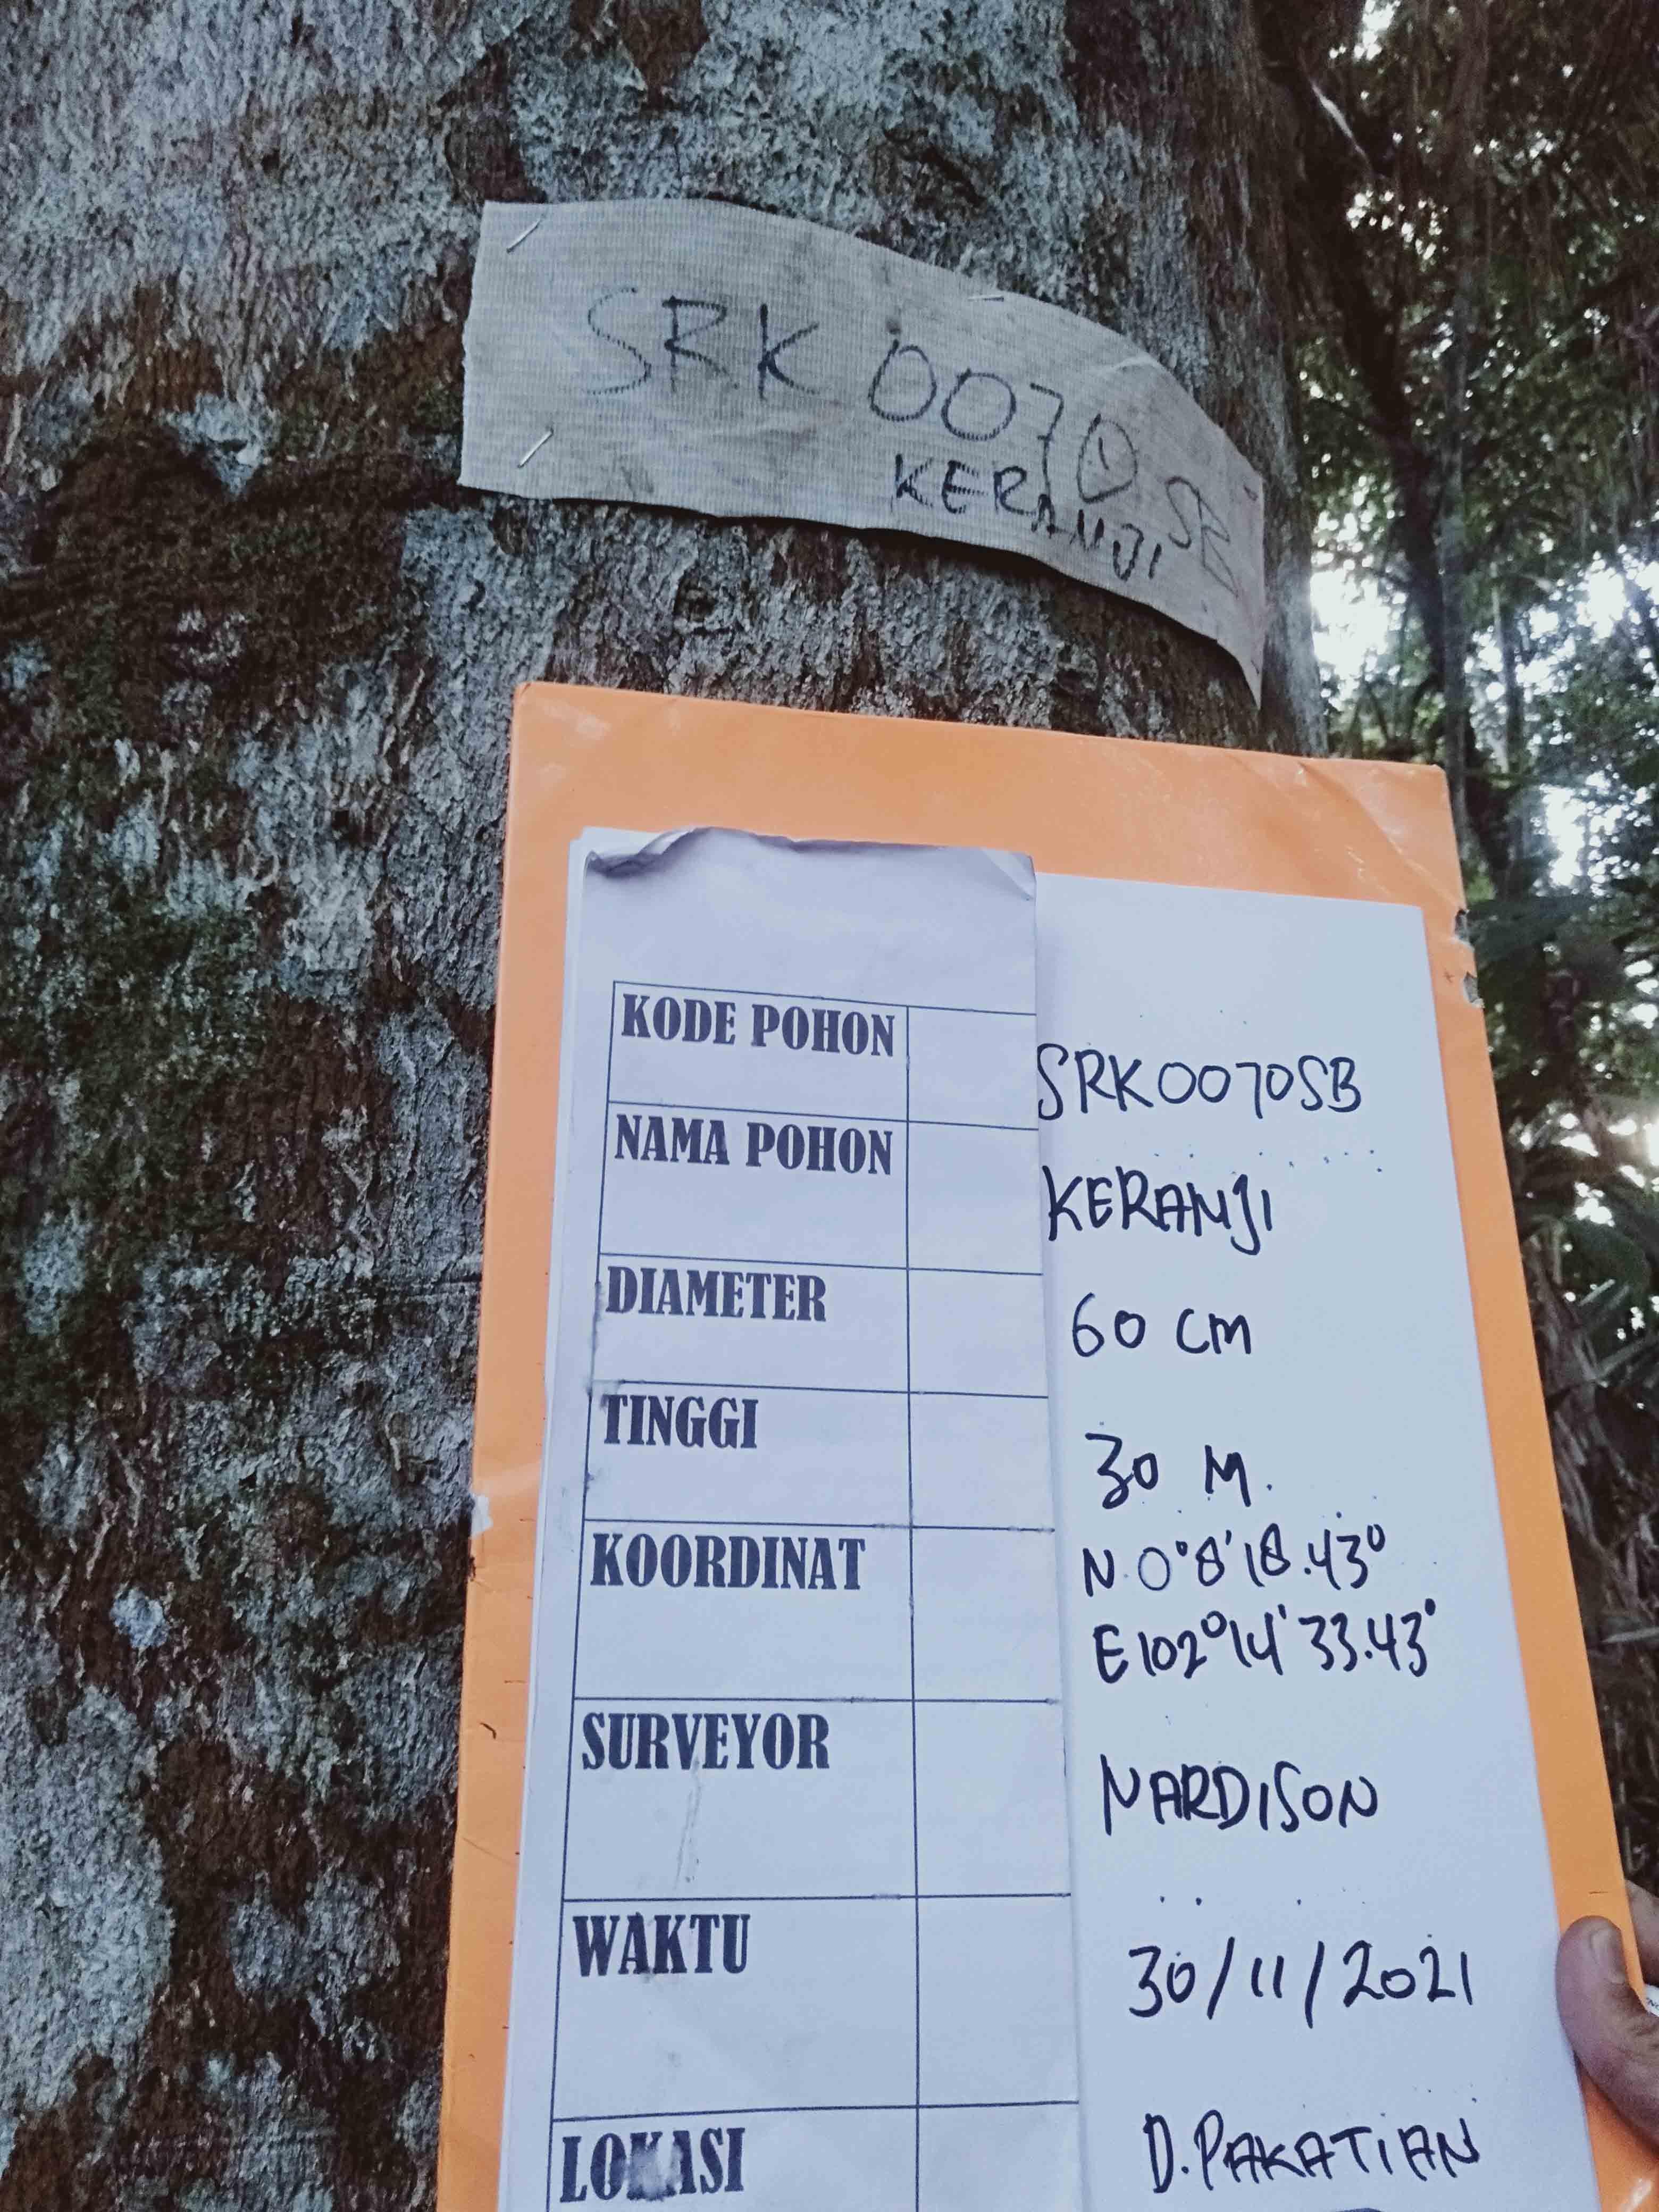 SRK 0070 SB
KERANJI
KODE POHON SRK0070SB
NAMA POHON KERANJI
DIAMETER 60 cm
TINGGI 30 M.
KOORDINAT N.0°8'18.43°
E102°14'33.43°
SURVEYOR NARDISON
WAKTU 30/11/2021
LOKASI D.PAKATIAN